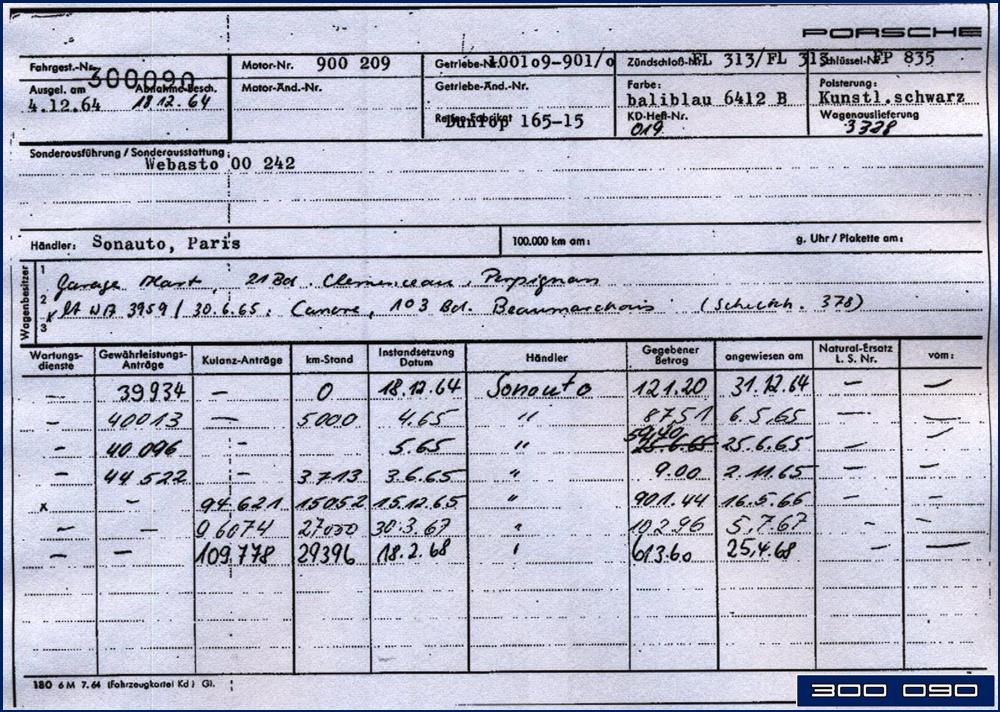 PORSCHE
Fahrgest.-Nr. 300090 Motor-Nr. 900 209 Getriebe-Nr. 100109-901/0 Zündschloß-Nr. FL 313/FL 313 Schlüssel-Nr. FP 835
Ausgel. am 4.12.64 Abnahme-Besch. 18.12.64 Motor-Änd.-Nr. Getriebe-Änd.-Nr. Farbe: baliblau 6412 B Polsterung: Kunstl.schwarz
Reifen-Fabrikat Dunlop 165-15 KD-Heft-Nr. 019 Wagenauslieferung 3328
Sonderausführung / Sonderausstattung: Webasto 00 242
Händler: Sonauto, Paris 100.000 km am: g. Uhr / Plakette am:
Wagenbesitzer
1 Garage 21 Bd. Clemenceau, Perpignan
2 lt WA 3959 / 30.6.65: 103 Bd. Beaumarchais 378)
3
Wartungsdienste Gewährleistungs-Anträge Kulanz-Anträge km-Stand Instandsetzung Datum Händler Gegebener Betrag angewiesen am Natural-Ersatz L. S. Nr. vom:
— 39934 — 0 18.12.64 Sonauto 121.20 31.12.64 — —
— 40013 — 5000 4.65 " 87.51 6.5.65 — —
— 40096 - 5.65 " 25.6.65 25.6.65 — —
— 44522 - 3713 3.6.65 " 9.00 2.11.65 — —
x - 94621 15052 15.12.65 " 901.44 16.5.66 — —
— — 96074 27000 30.3.67 " 102.96 5.7.67 - —
— — 109.778 29396 18.2.68 " 613.60 25.4.68 — —
180 6 M 7.64 (Fahrzeugkartei Kd) Gl.
300 090